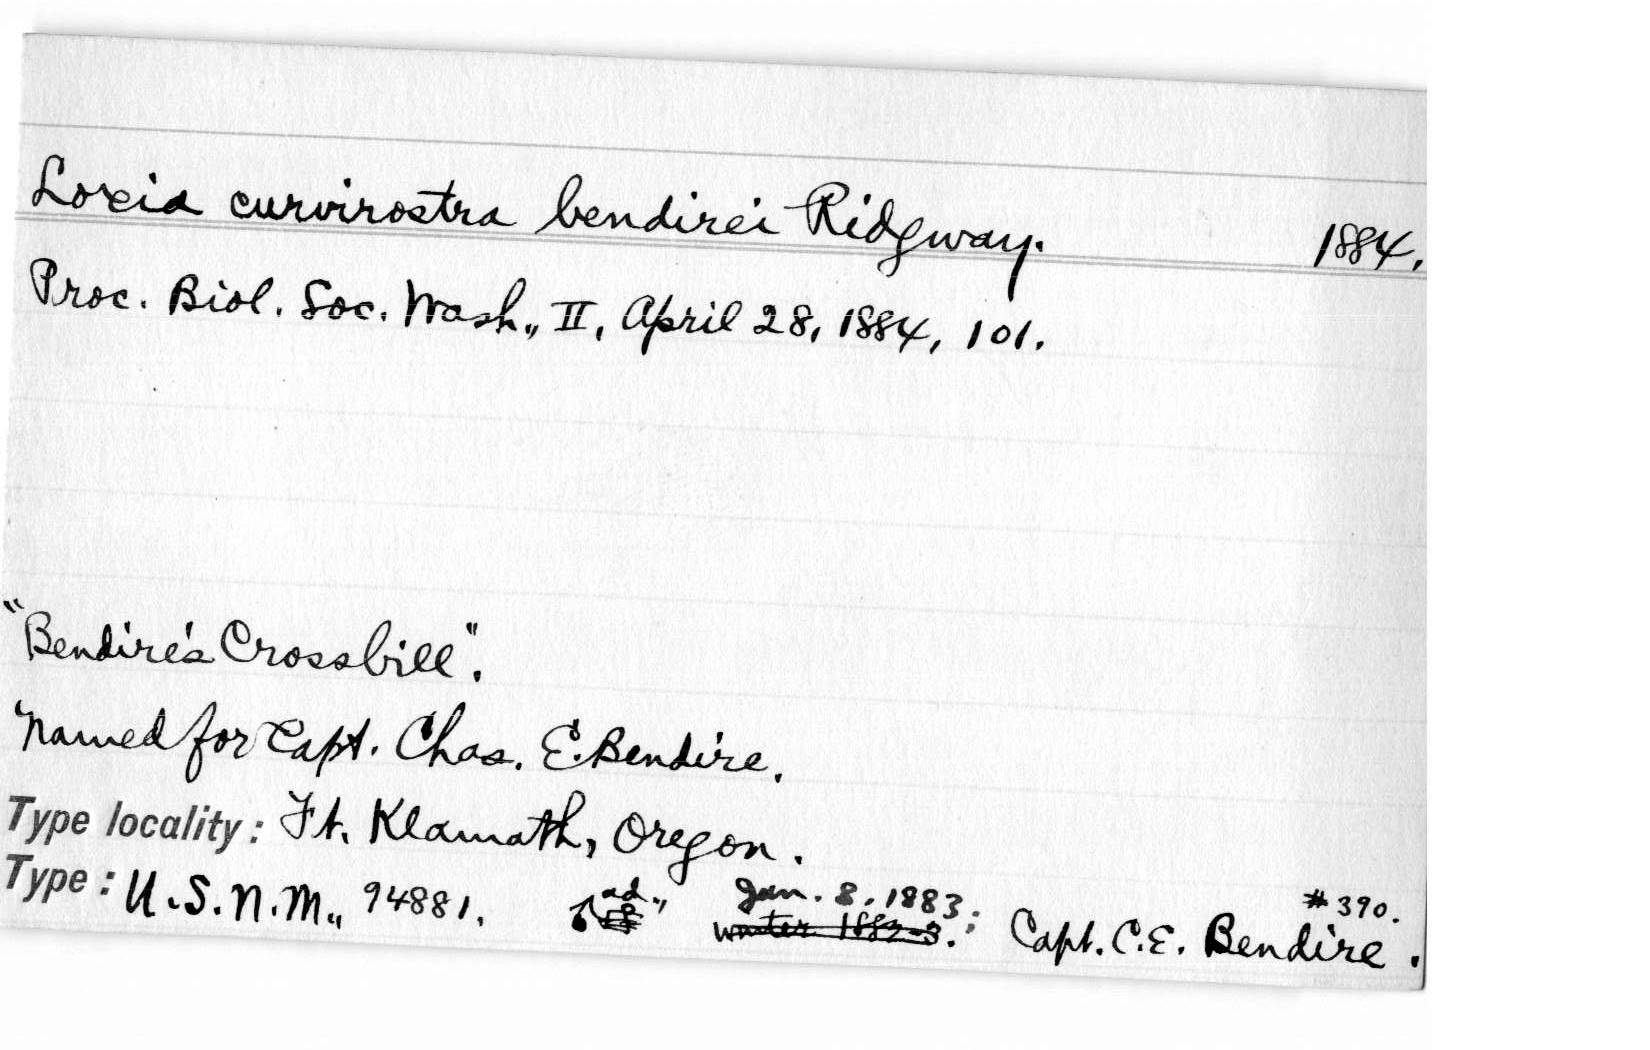 Loxia curvirostra bendirei Ridgway. 1884.
Proc. Biol. Soc. Wash., II, April 28, 1884, 101.
"Bendire's Crossbill".
Named for Capt. Chas. E. Bendire.
Type locality: Ft. Klamath, Oregon.
Type: U.S.N.M., 94881. ♂ ad., Jan. 8, 1883; winter 1882-3. Capt. C.E. Bendire. #390.